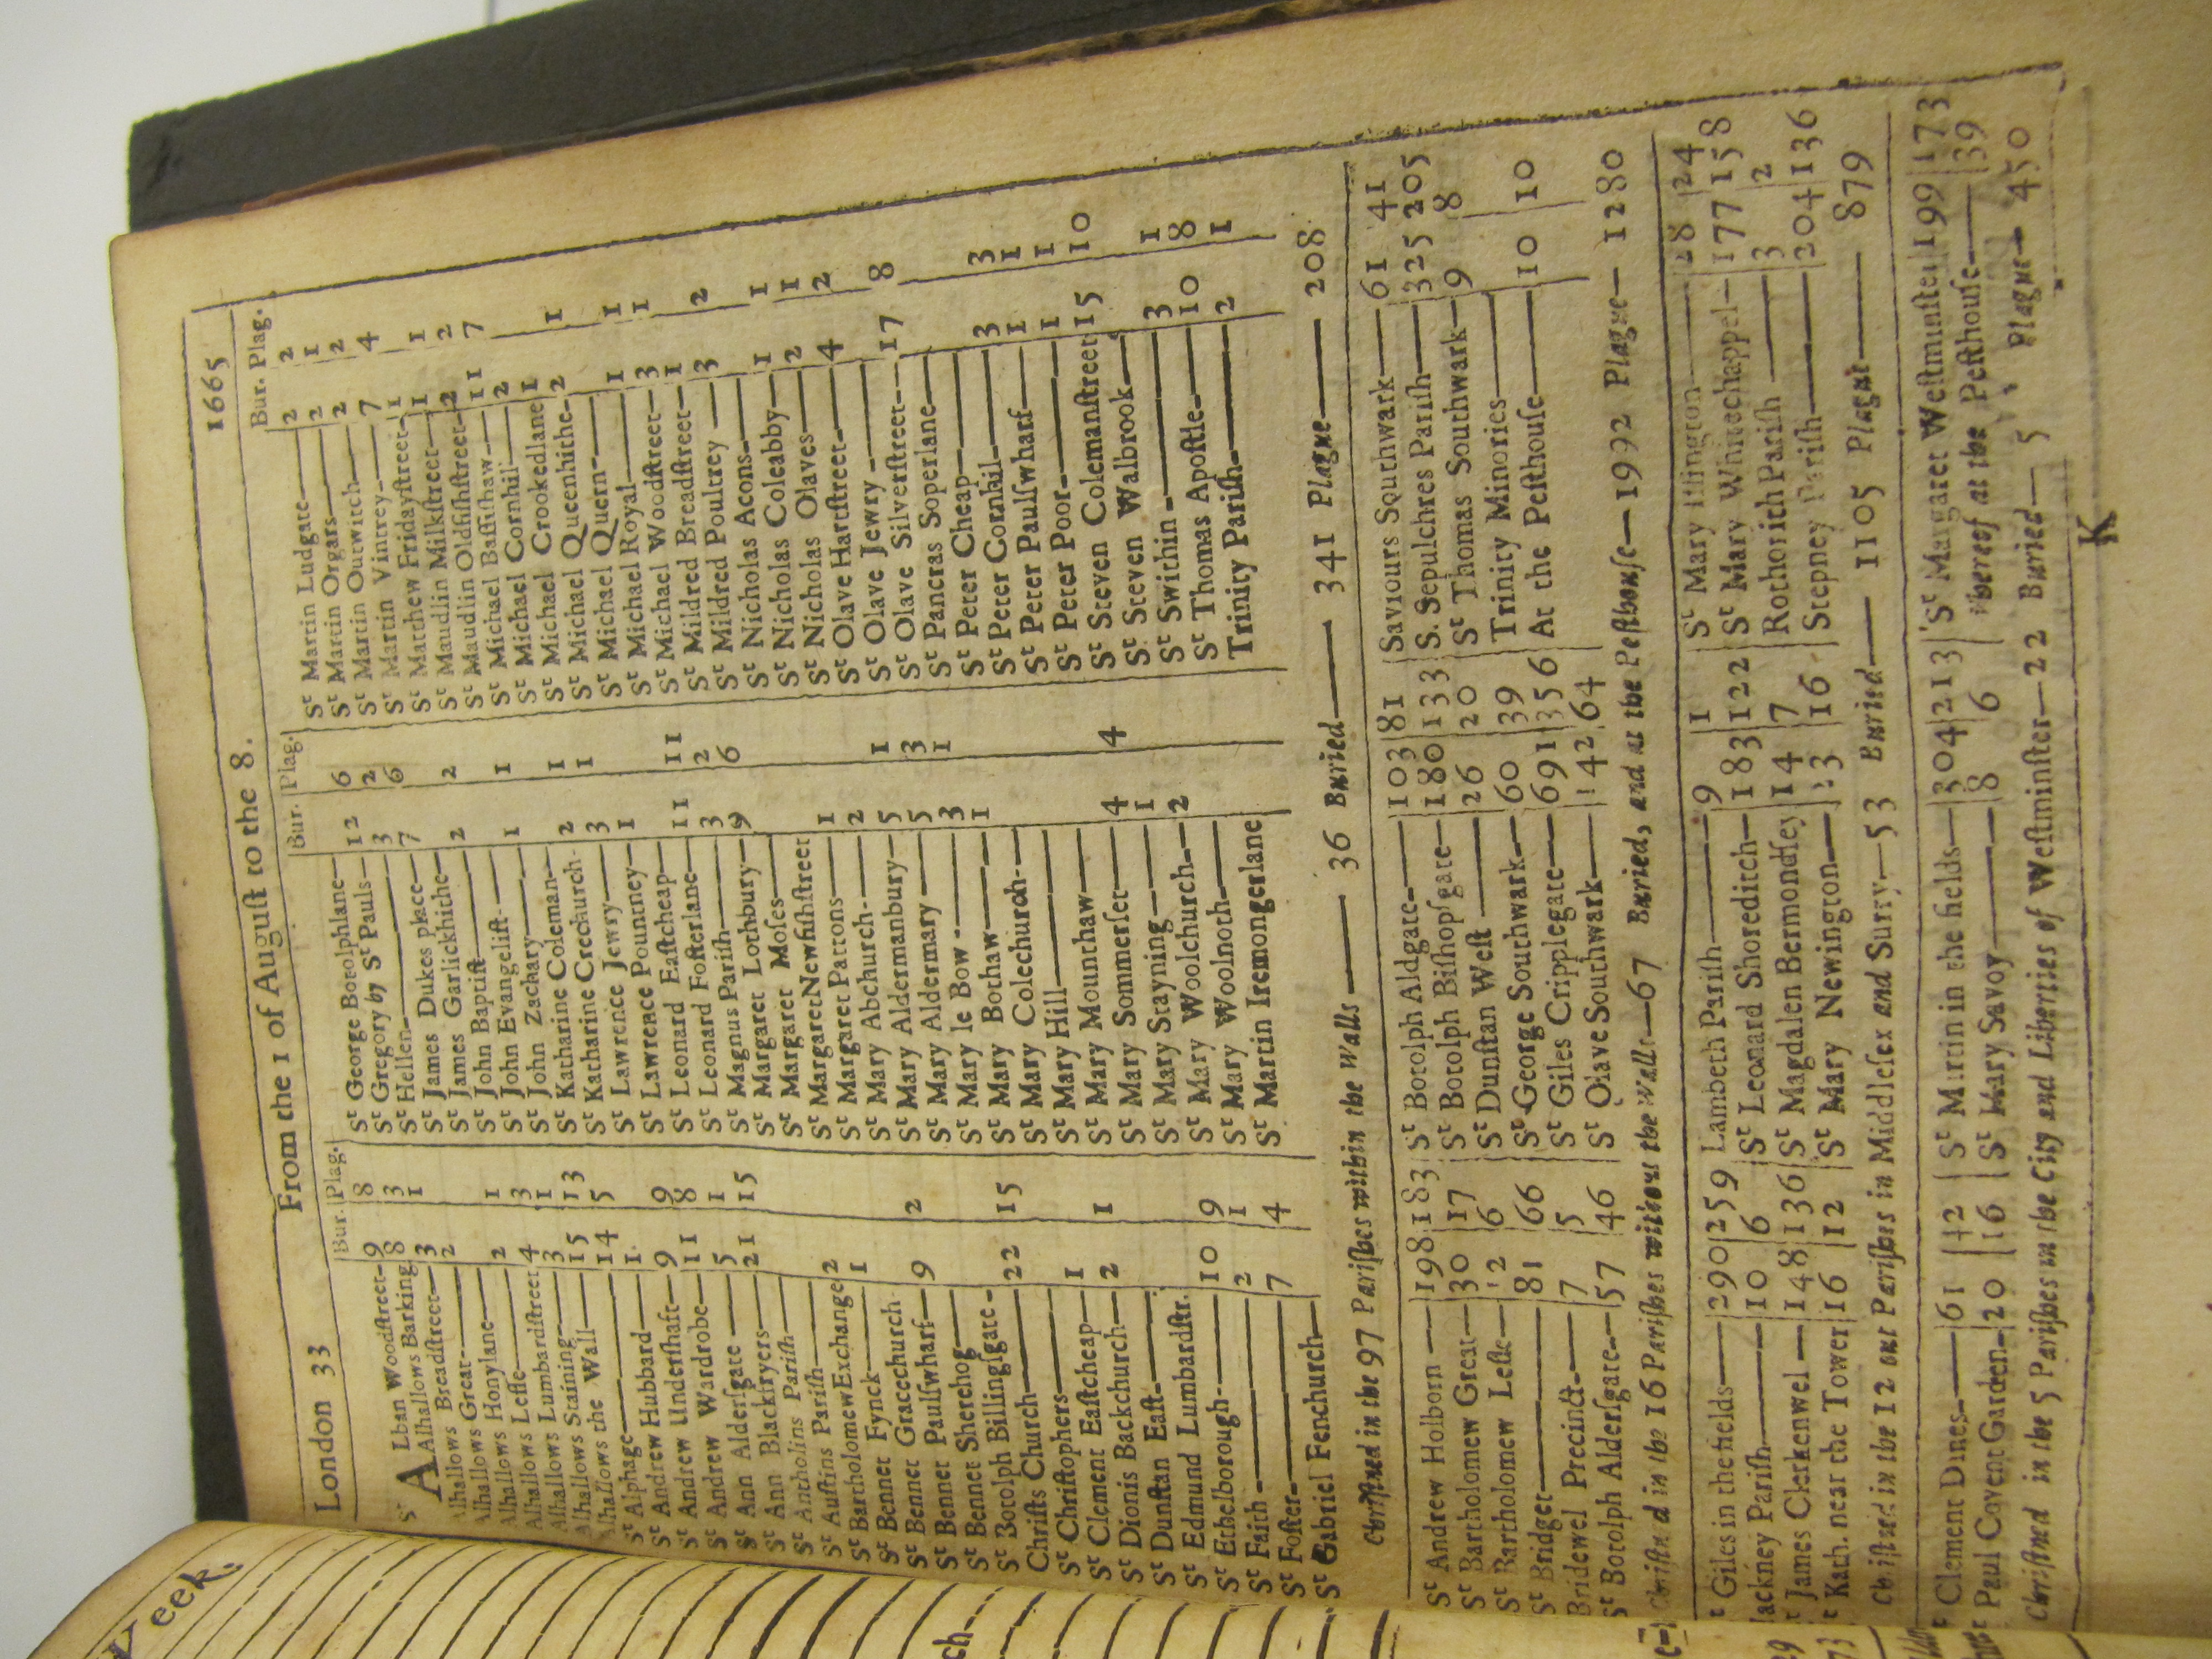 London 33 From the 1 of August to the 8. 1665
Bur. Plag.
St ALban Woodstreet 9 8
Alhallows Barking 8 3
Alhallows Breadstreet 3 1
Alhallows Great 2
Alhallows Honylane
Alhallows Lesse 2 1
Alhallows Lumbardstreet 4 3
Alhallows Staining 3 1
Alhallows the Wall 15 13
St Alphage 14 5
St Andrew Hubbard 1
St Andrew Undershaft 9 9
St Andrew Wardrobe 11 8
St Ann Aldersgate 5 1
St Ann Blackfryers 21 15
St Antholins Parish
St Austins Parish
St Bartholomew Exchange 2
St Bennet Fynck 1
St Bennet Gracechurch
St Bennet Paulswharf 9 2
St Bennet Sherehog
St Botolph Billingsgate
Christs Church 22 15
St Christophers
St Clement Eastcheap 1
St Dionis Backchurch 2 1
St Dunstan East
St Edmund Lumbardstr.
St Ethelborough 10 9
St Faith 2 1
St Foster 7 4
St Gabriel Fenchurch
Bur. Plag.
St George Botolphlane
St Gregory by St Pauls 12 6
St Hellen 3 2
St James Dukes place 7 6
St James Garlickhithe
St John Baptist 2 2
St John Evangelist
St John Zachary 1 1
St Katharine Coleman
St Katharine Creechurch 2 1
St Lawrence Jewry 3 1
St Lawrence Pountney 1
St Leonard Eastcheap
St Leonard Fosterlane 11 11
St Magnus Parish 3 2
St Margaret Lothbury 9 6
St Margaret Moses
St Margaret Newfishstreet
St Margaret Pattons 1
St Mary Abchurch 2
St Mary Aldermanbury 5 1
St Mary Aldermary 5 3
St Mary le Bow 3 1
St Mary Bothaw 1
St Mary Colechurch
St Mary Hill
St Mary Mounthaw
St Mary Sommerset 4 4
St Mary Stayning 1
St Mary Woolchurch 2
St Mary Woolnoth
St Martin Iremongerlane
Bur. Plag.
St Martin Ludgate 2 2
St Martin Orgars 2 1
St Martin Outwitch 2 2
St Martin Vintrey 7 4
St Matthew Fridaystreet 1
St Maudlin Milkstreet 1 1
St Maudlin Oldfishstreet 2 2
St Michael Bassishaw 11 7
St Michael Cornhil 2
St Michael Crookedlane 1
St Michael Queenhithe 2 1
St Michael Quern
St Michael Royal 1 1
St Michael Woodstreet 3 1
St Mildred Breadstreet 1
St Mildred Poultrey 3 2
St Nicholas Acons
St Nicholas Coleabby 1 1
St Nicholas Olaves 2 1
St Olave Hartstreet 4 2
St Olave Jewry
St Olave Silverstreet 17 8
St Pancras Soperlane
St Peter Cheap
St Peter Cornhil 3 3
St Peter Paulswharf 1 1
St Peter Poor 1 1
St Steven Colemanstreet 15 10
St Steven Walbrook
St Swithin 3 1
St Thomas Apostle 10 8
Trinity Parish 2 1
Christned in the 97 Parishes within the Walls — 36 Buried — 341 Plague — 208
St Andrew Holborn 198 183
St Bartholomew Great 30 17
St Bartholomew Lesse 12 6
St Bridget 81 66
Bridewel Precinct 7 5
St Botolph Aldersgate 57 46
St Botolph Aldgate 103 81
St Botolph Bishopsgate 180 133
St Dunstan West 26 20
St George Southwark 60 39
St Giles Cripplegate 691 356
St Olave Southwark 142 64
Saviours Southwark 61 41
S. Sepulchres Parish 325 205
St Thomas Southwark 9 8
Trinity Minories
At the Pesthouse 10 10
Christned in the 16 Parishes without the Walls — 67 Buried, and at the Pesthouse — 1992 Plague — 1280
St Giles in the fields 290 259
Hackney Parish 10 6
St James Clerkenwel 148 136
St Kath. near the Tower 16 12
Lambeth Parish 9 1
St Leonard Shoreditch 183 122
St Magdalen Bermondsey 14 7
St Mary Newington 23 16
St Mary Islington 28 24
St Mary Whitechappel 177 158
Rothorith Parish 3 2
Stepney Parish 204 136
Christned in the 12 out Parishes in Middlesex and Surry — 53 Buried — 1105 Plague — 879
St Clement Danes 61 42
St Paul Covent Garden 20 16
St Martin in the fields 304 213
St Mary Savoy 8 6
St Margaret Westminster 199 173
thereof at the Pesthouse — 39
Christned in the 5 Parishes in the City and Liberties of Westminster — 22 Buried — 5 Plague — 450
K
Week.